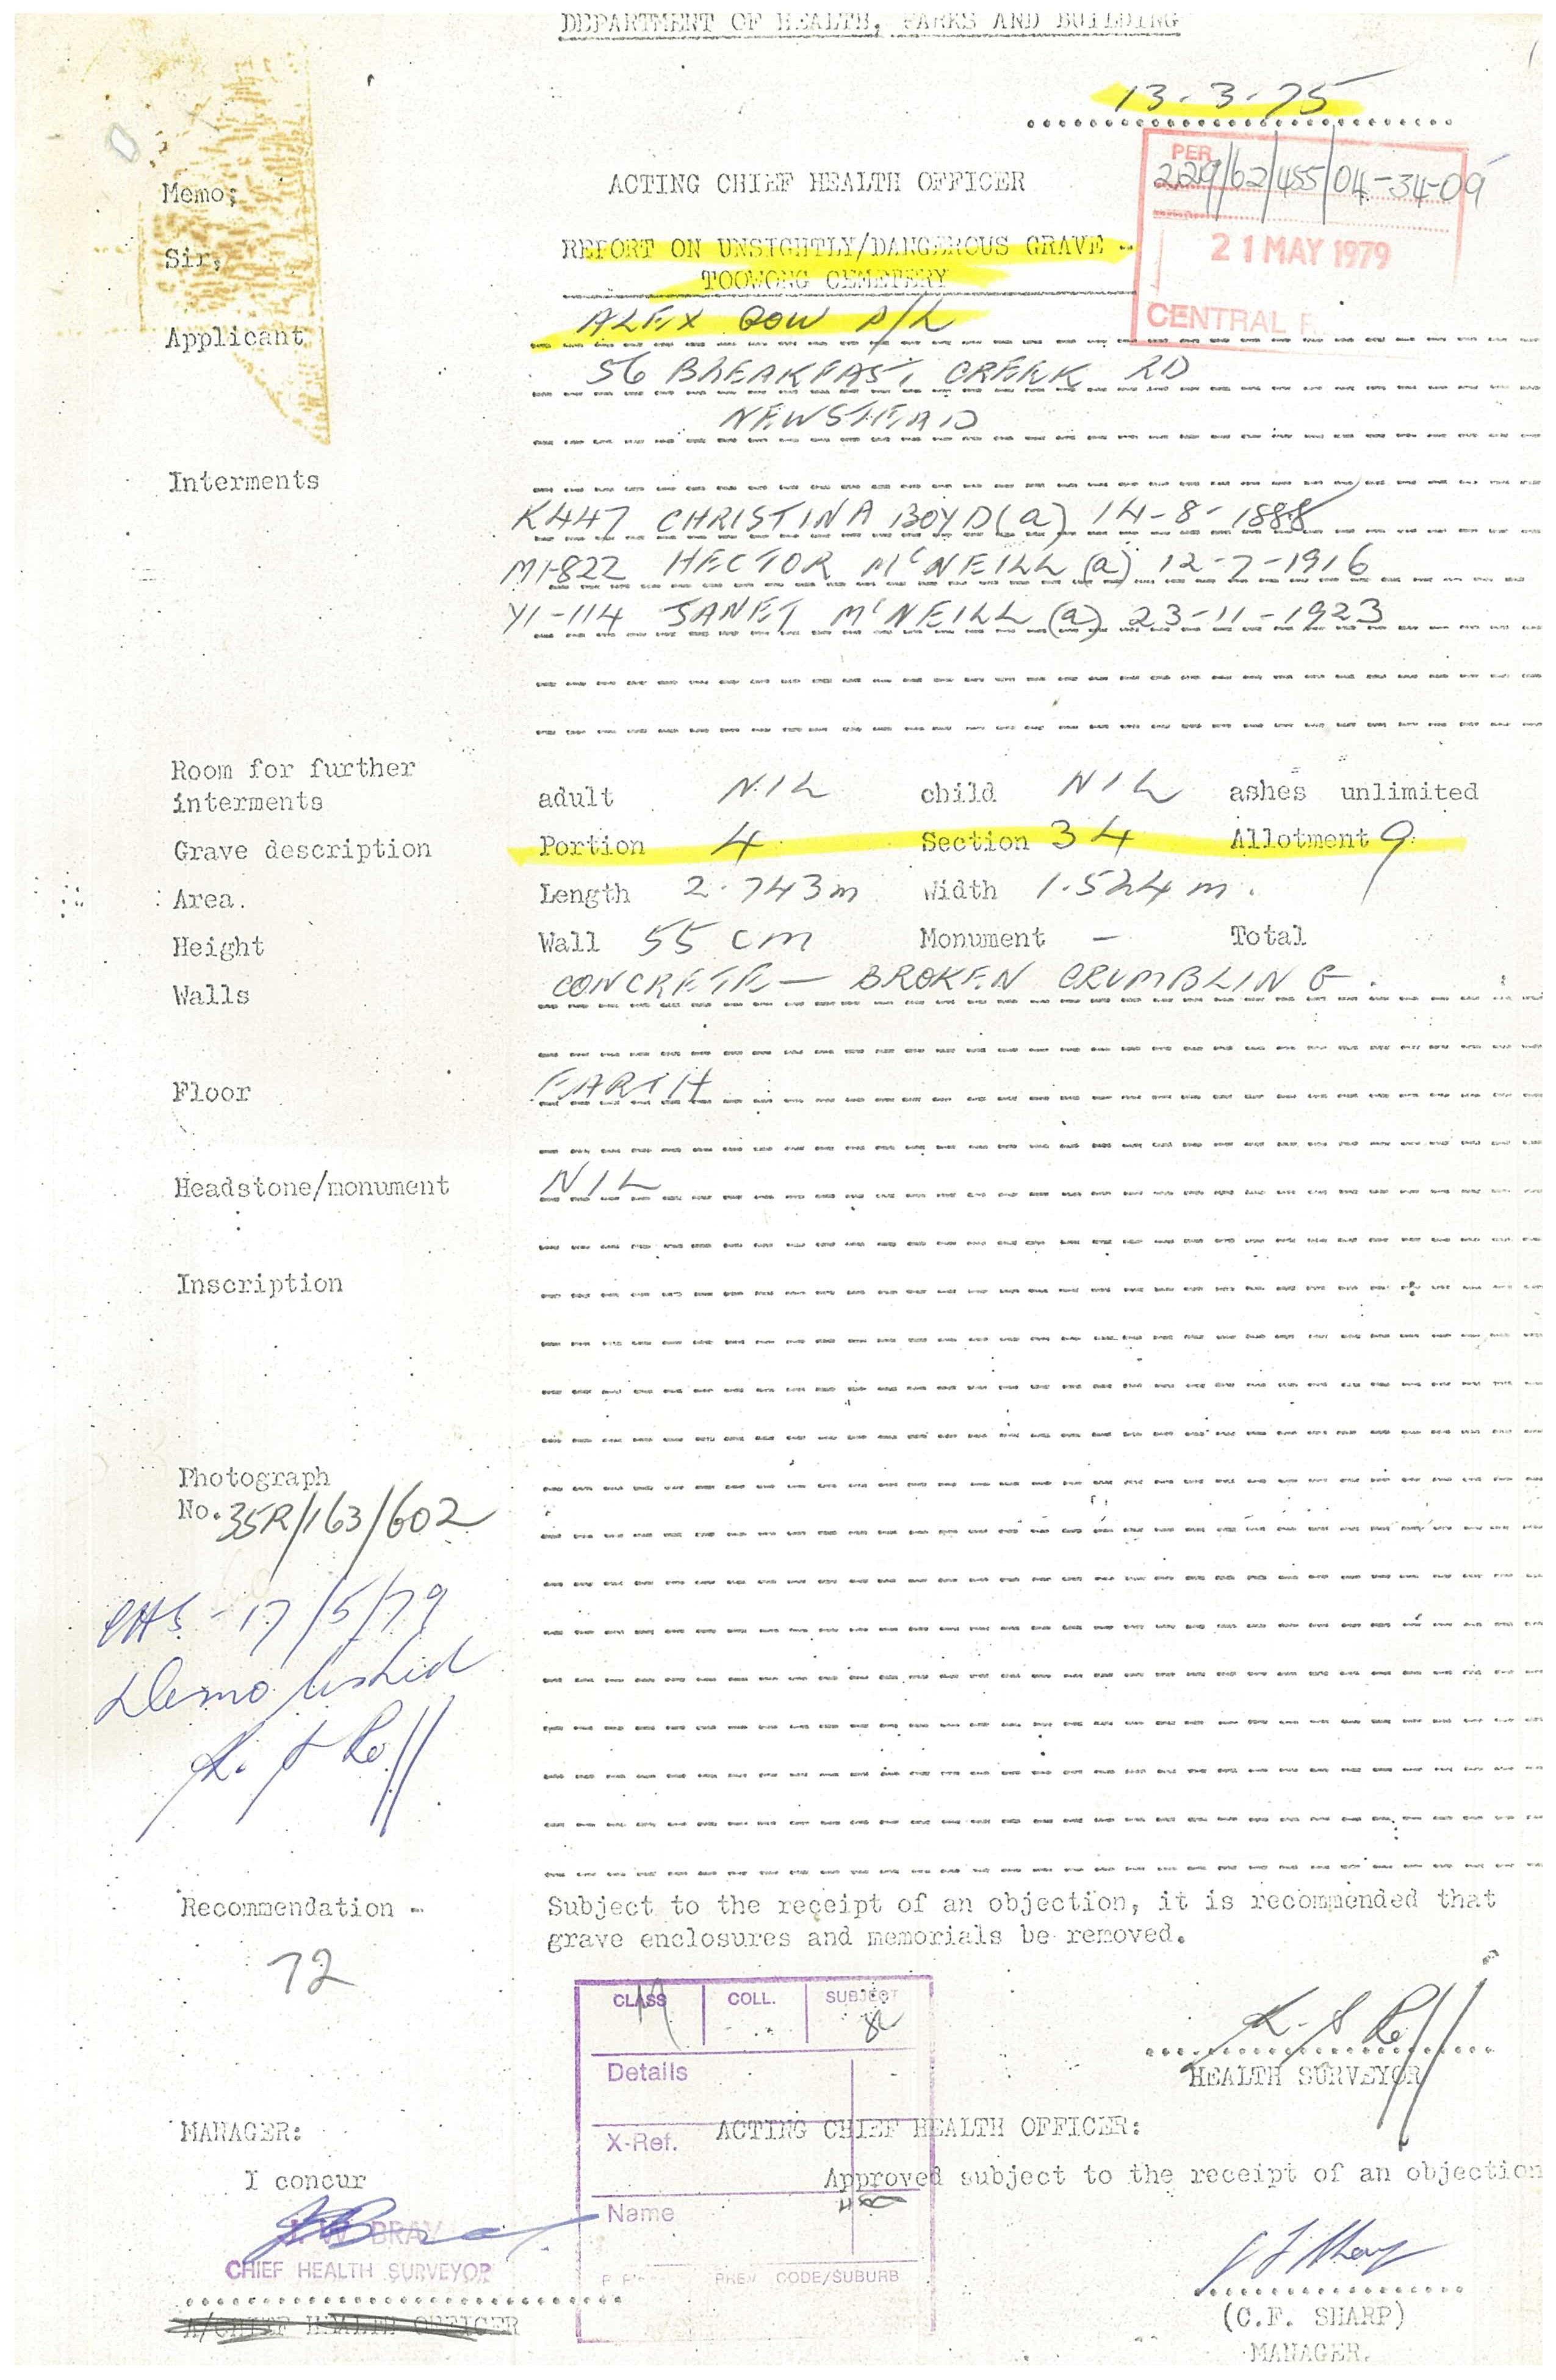 DEPARTMENT OF HEALTH, PARKS AND BUILDING
13-3-75
PER
229/62/455/04-34-09
21 MAY 1979
CENTRAL
Memo;
ACTING CHIEF HEALTH OFFICER
Sir,
REPORT ON UNSIGHTLY/DANGEROUS GRAVE -
TOOWONG CEMETERY
Applicant
ALEX GOW P/L
56 BREAKFAST CREEK RD
NEWSTEAD
Interments
K447 CHRISTINA BOYD (a) 14-8-1888
M1-822 HECTOR McNEILL (a) 12-7-1916
Y1-114 JANET McNEILL (a) 23-11-1923
Room for further
interments adult NIL child NIL ashes unlimited
Grave description Portion 4 Section 34 Allotment 9
Area. Length 2.743m Width 1.524m.
Height Wall 55 cm Monument - Total
Walls CONCRETE - BROKEN CRUMBLING.
Floor EARTH
Headstone/monument NIL
Inscription
Photograph
No. 35R/163/602
17/5/79
Demolished
Recommendation - Subject to the receipt of an objection, it is recommended that
grave enclosures and memorials be removed.
72
CLASS COLL. SUBJECT
Details
X-Ref.
Name
CODE/SUBURB
HEALTH SURVEYOR
MANAGER: ACTING CHIEF HEALTH OFFICER:
I concur Approved subject to the receipt of an objection
W BRAY
CHIEF HEALTH SURVEYOR
A/CHIEF HEALTH OFFICER
(C.F. SHARP)
MANAGER.